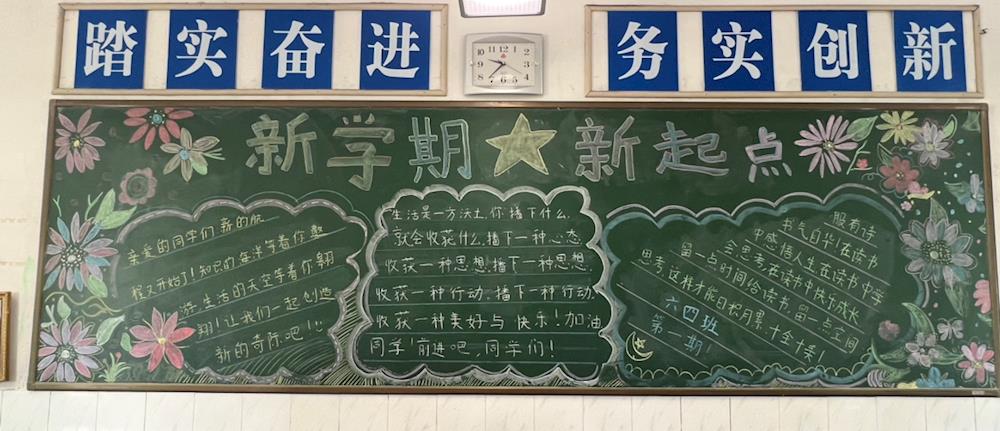 踏实奋进
务实创新
新学期★新起点
亲爱的同学们,新的航
程又开始了!知识的海洋等着你遨
游,生活的天空等着你翱
翔!让我们一起创造
新的奇际吧!
生活是一方沃土,你播下什么,
就会收获什么,播下一种心态
收获一种思想,播下一种思想
收获一种行动,播下一种行动
收获一种美好与快乐!加油
同学!前进吧,同学们!
腹有诗
书气自华!在读书
中感悟人生在读书中学
会思考,在读书中快乐成长
留一点时间给读书,留一点空间
思考,这样才能日积月累,十全十美!
六四班
第一期!